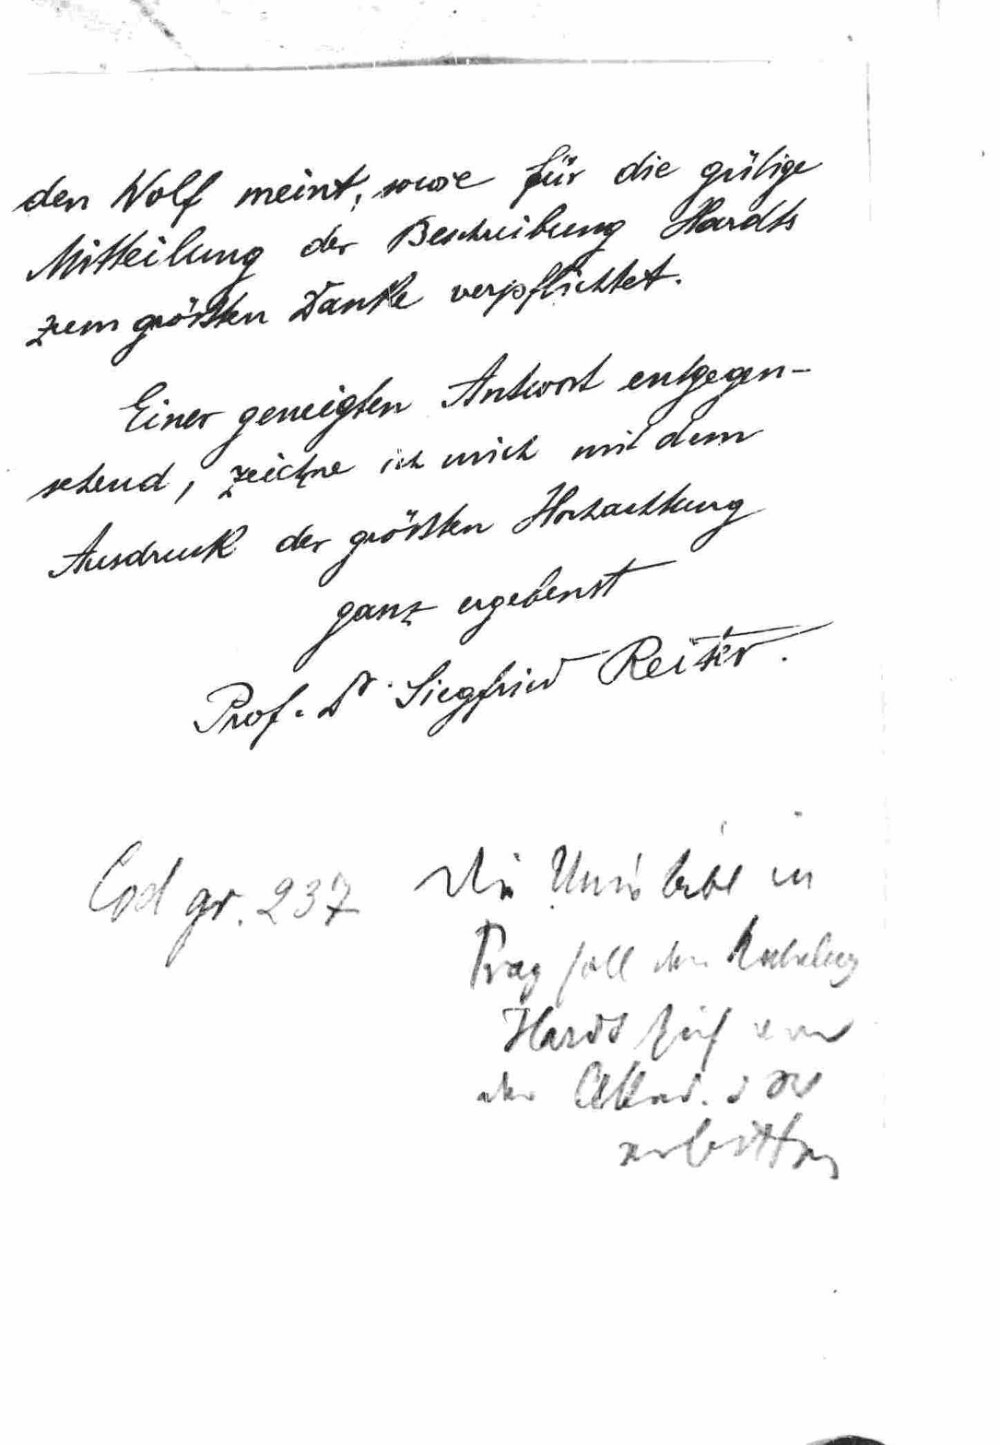 den Wolf meint, sowie für die gütige
Mitteilung der Beschreibung Hardts
zum größten Danke verpflichtet.
Einer geneigten Antwort entgegen-
sehend, zeichne ich mich mit dem
Ausdruck der größten Hochachtung
ganz ergebenst
Prof. Dr. Siegfried Reiter.
Cod gr. 237
Die Univ bibl in
Prag soll den
Hardt sich von
der Akad. d
erbitten